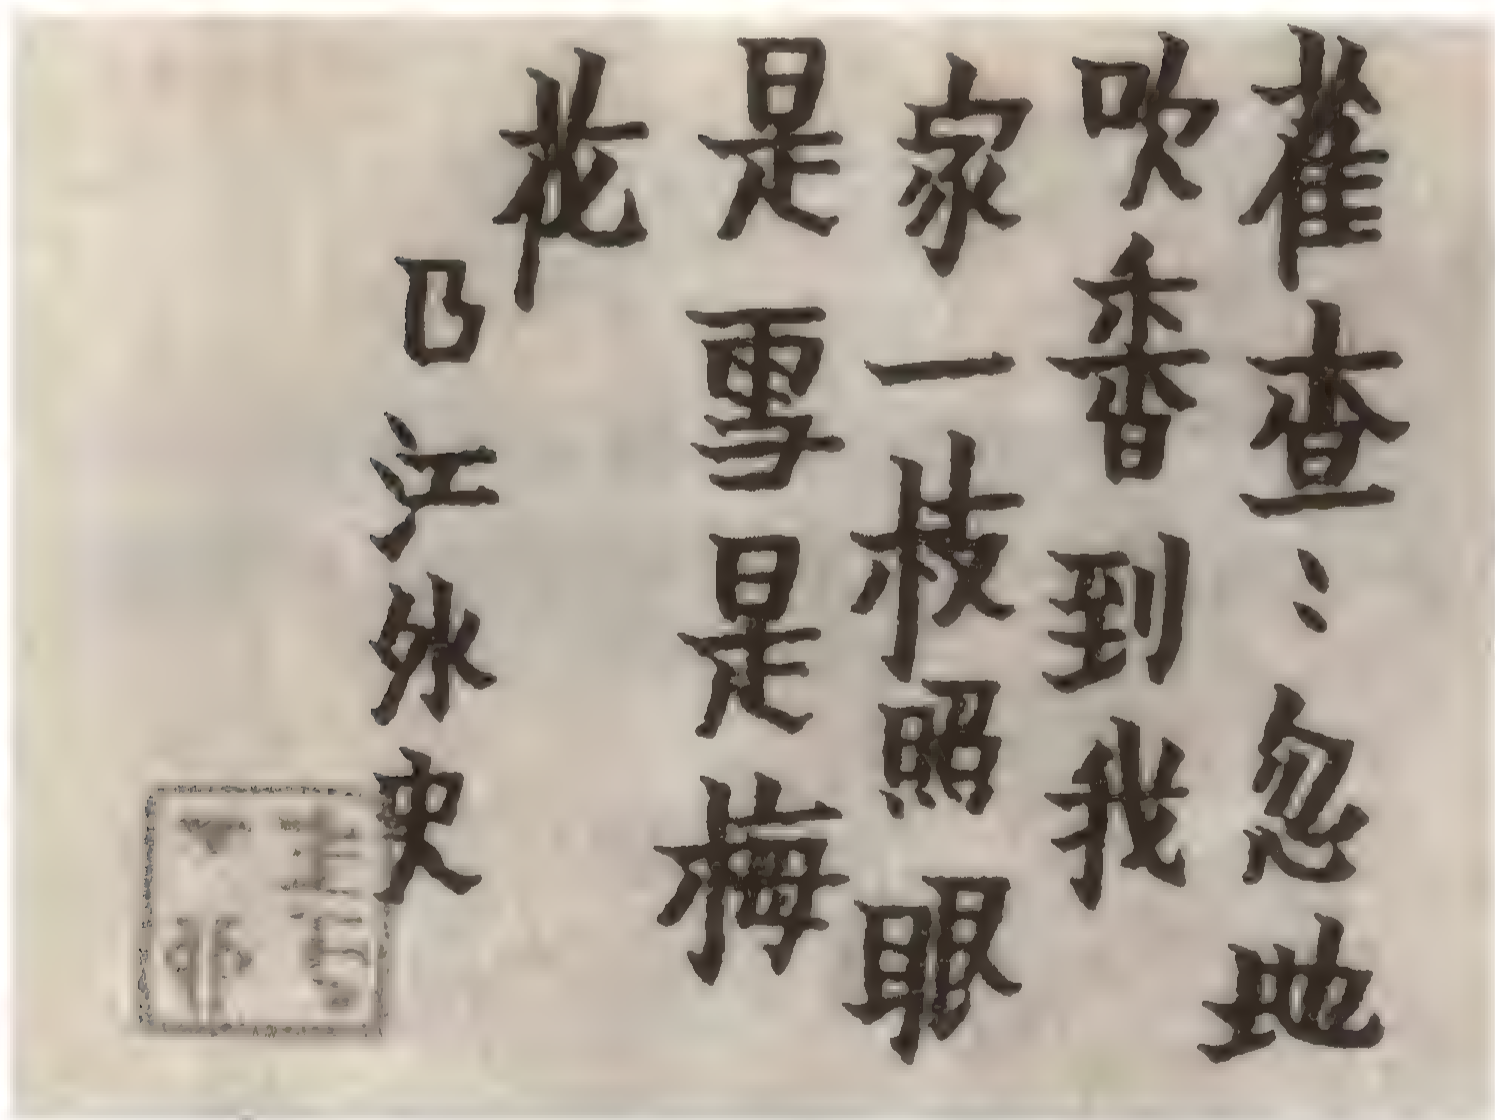 雀查〻忽地
吹香到我
家一枝照眼
是雪是梅
花
曲江外史